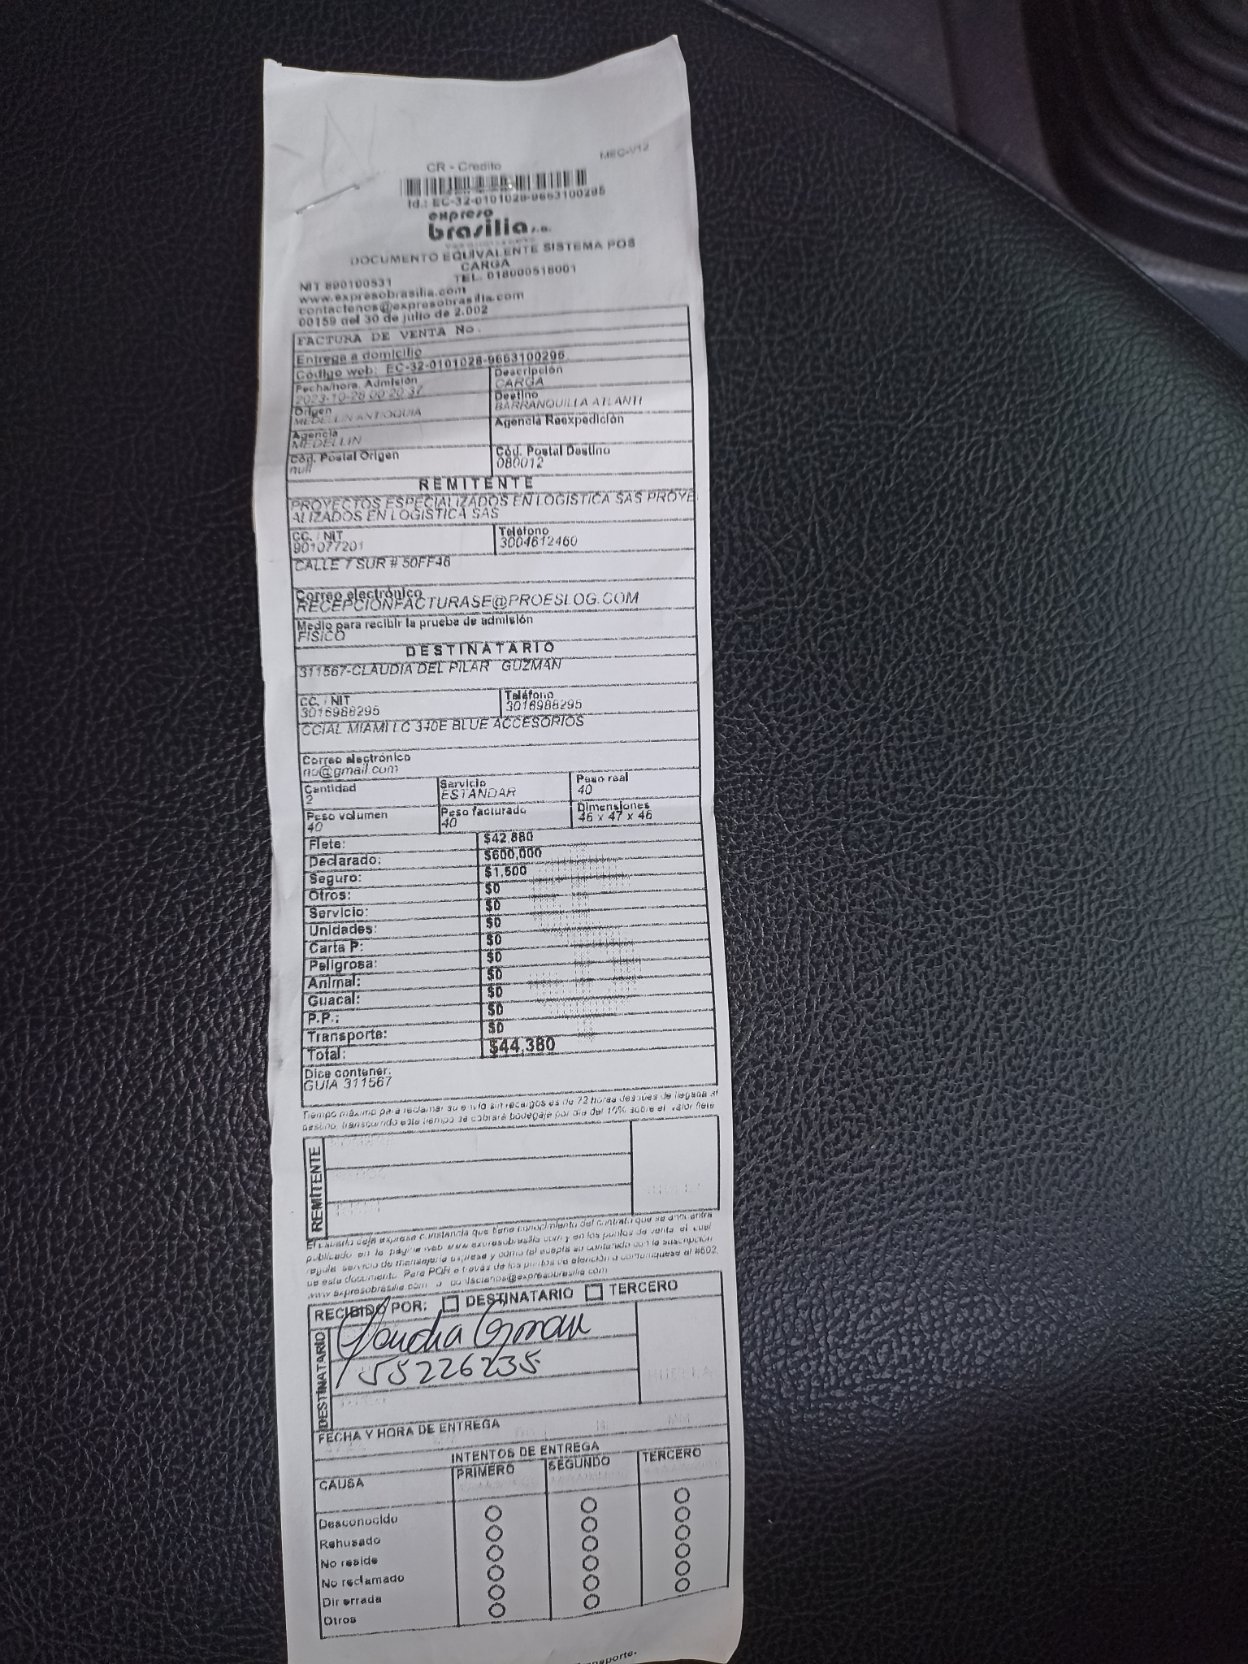 MEC-V12
CR - Credito
Id.: EC-32-0101028-9663100295
expreso
brasilia s.a.
DOCUMENTO EQUIVALENTE SISTEMA POS
CARGA
NIT 890100531 TEL. 018000518001
www.expresobrasilia.com
contactenos@expresobrasilia.com
00159 del 30 de julio de 2.002
FACTURA DE VENTA No.
Entrega a domicilio
Código web: EC-32-0101028-9663100295
Fecha/hora. Admisión Descripción
2023-10-26 00:20:37 CARGA
Origen Destino
MEDELLIN ANTIOQUIA BARRANQUILLA ATLANTI
Agencia Agencia Reexpedición
MEDELLIN
Cód. Postal Origen Cód. Postal Destino
null 080012
REMITENTE
PROYECTOS ESPECIALIZADOS EN LOGISTICA SAS PROYE
ALIZADOS EN LOGISTICA SAS
CC. / NIT Teléfono
901077201 3004612460
CALLE 7 SUR # 50FF46
Correo electrónico
RECEPCIONFACTURASE@PROESLOG.COM
Medio para recibir la prueba de admisión
FISICO
DESTINATARIO
311567-CLAUDIA DEL PILAR GUZMAN
CC. / NIT Teléfono
3016988295 3016988295
CCIAL MIAMI LC 340E BLUE ACCESORIOS
Correo electrónico
no@gmail.com
Cantidad Servicio Peso real
2 ESTANDAR 40
Peso volumen Peso facturado Dimensiones
40 40 46 x 47 x 46
Flete: $42.880
Declarado: $600,000
Seguro: $1,500
Otros: $0
Servicio: $0
Unidades: $0
Carta P: $0
Peligrosa: $0
Animal: $0
Guacal: $0
P.P.: $0
Transporte: $0
Total: $44,380
Dice contener:
GUIA 311567
Tiempo máximo para reclamar su envío sin recargos es de 72 horas después de llegada al
destino, transcurrido este tiempo se cobrará bodegaje por día del 10% sobre el valor flete
REMITENTE
El usuario deja expresa constancia que tiene conocimiento del contrato que se encuentra
publicado en la página web www.expresobrasilia.com y en los puntos de venta, el cual
regula servicio de mensajería expresa y como tal acepta su contenido con la suscripción
de este documento. Para PQR a través de los puntos de atención o comuníquese al #602,
www.expresobrasilia.com
RECIBIDO POR: DESTINATARIO TERCERO
DESTINATARIO
Claudia Guzman
55226235
FECHA Y HORA DE ENTREGA
INTENTOS DE ENTREGA
CAUSA PRIMERO SEGUNDO TERCERO
Desconocido
Rehusado
No reside
No reclamado
Dir errada
Otros